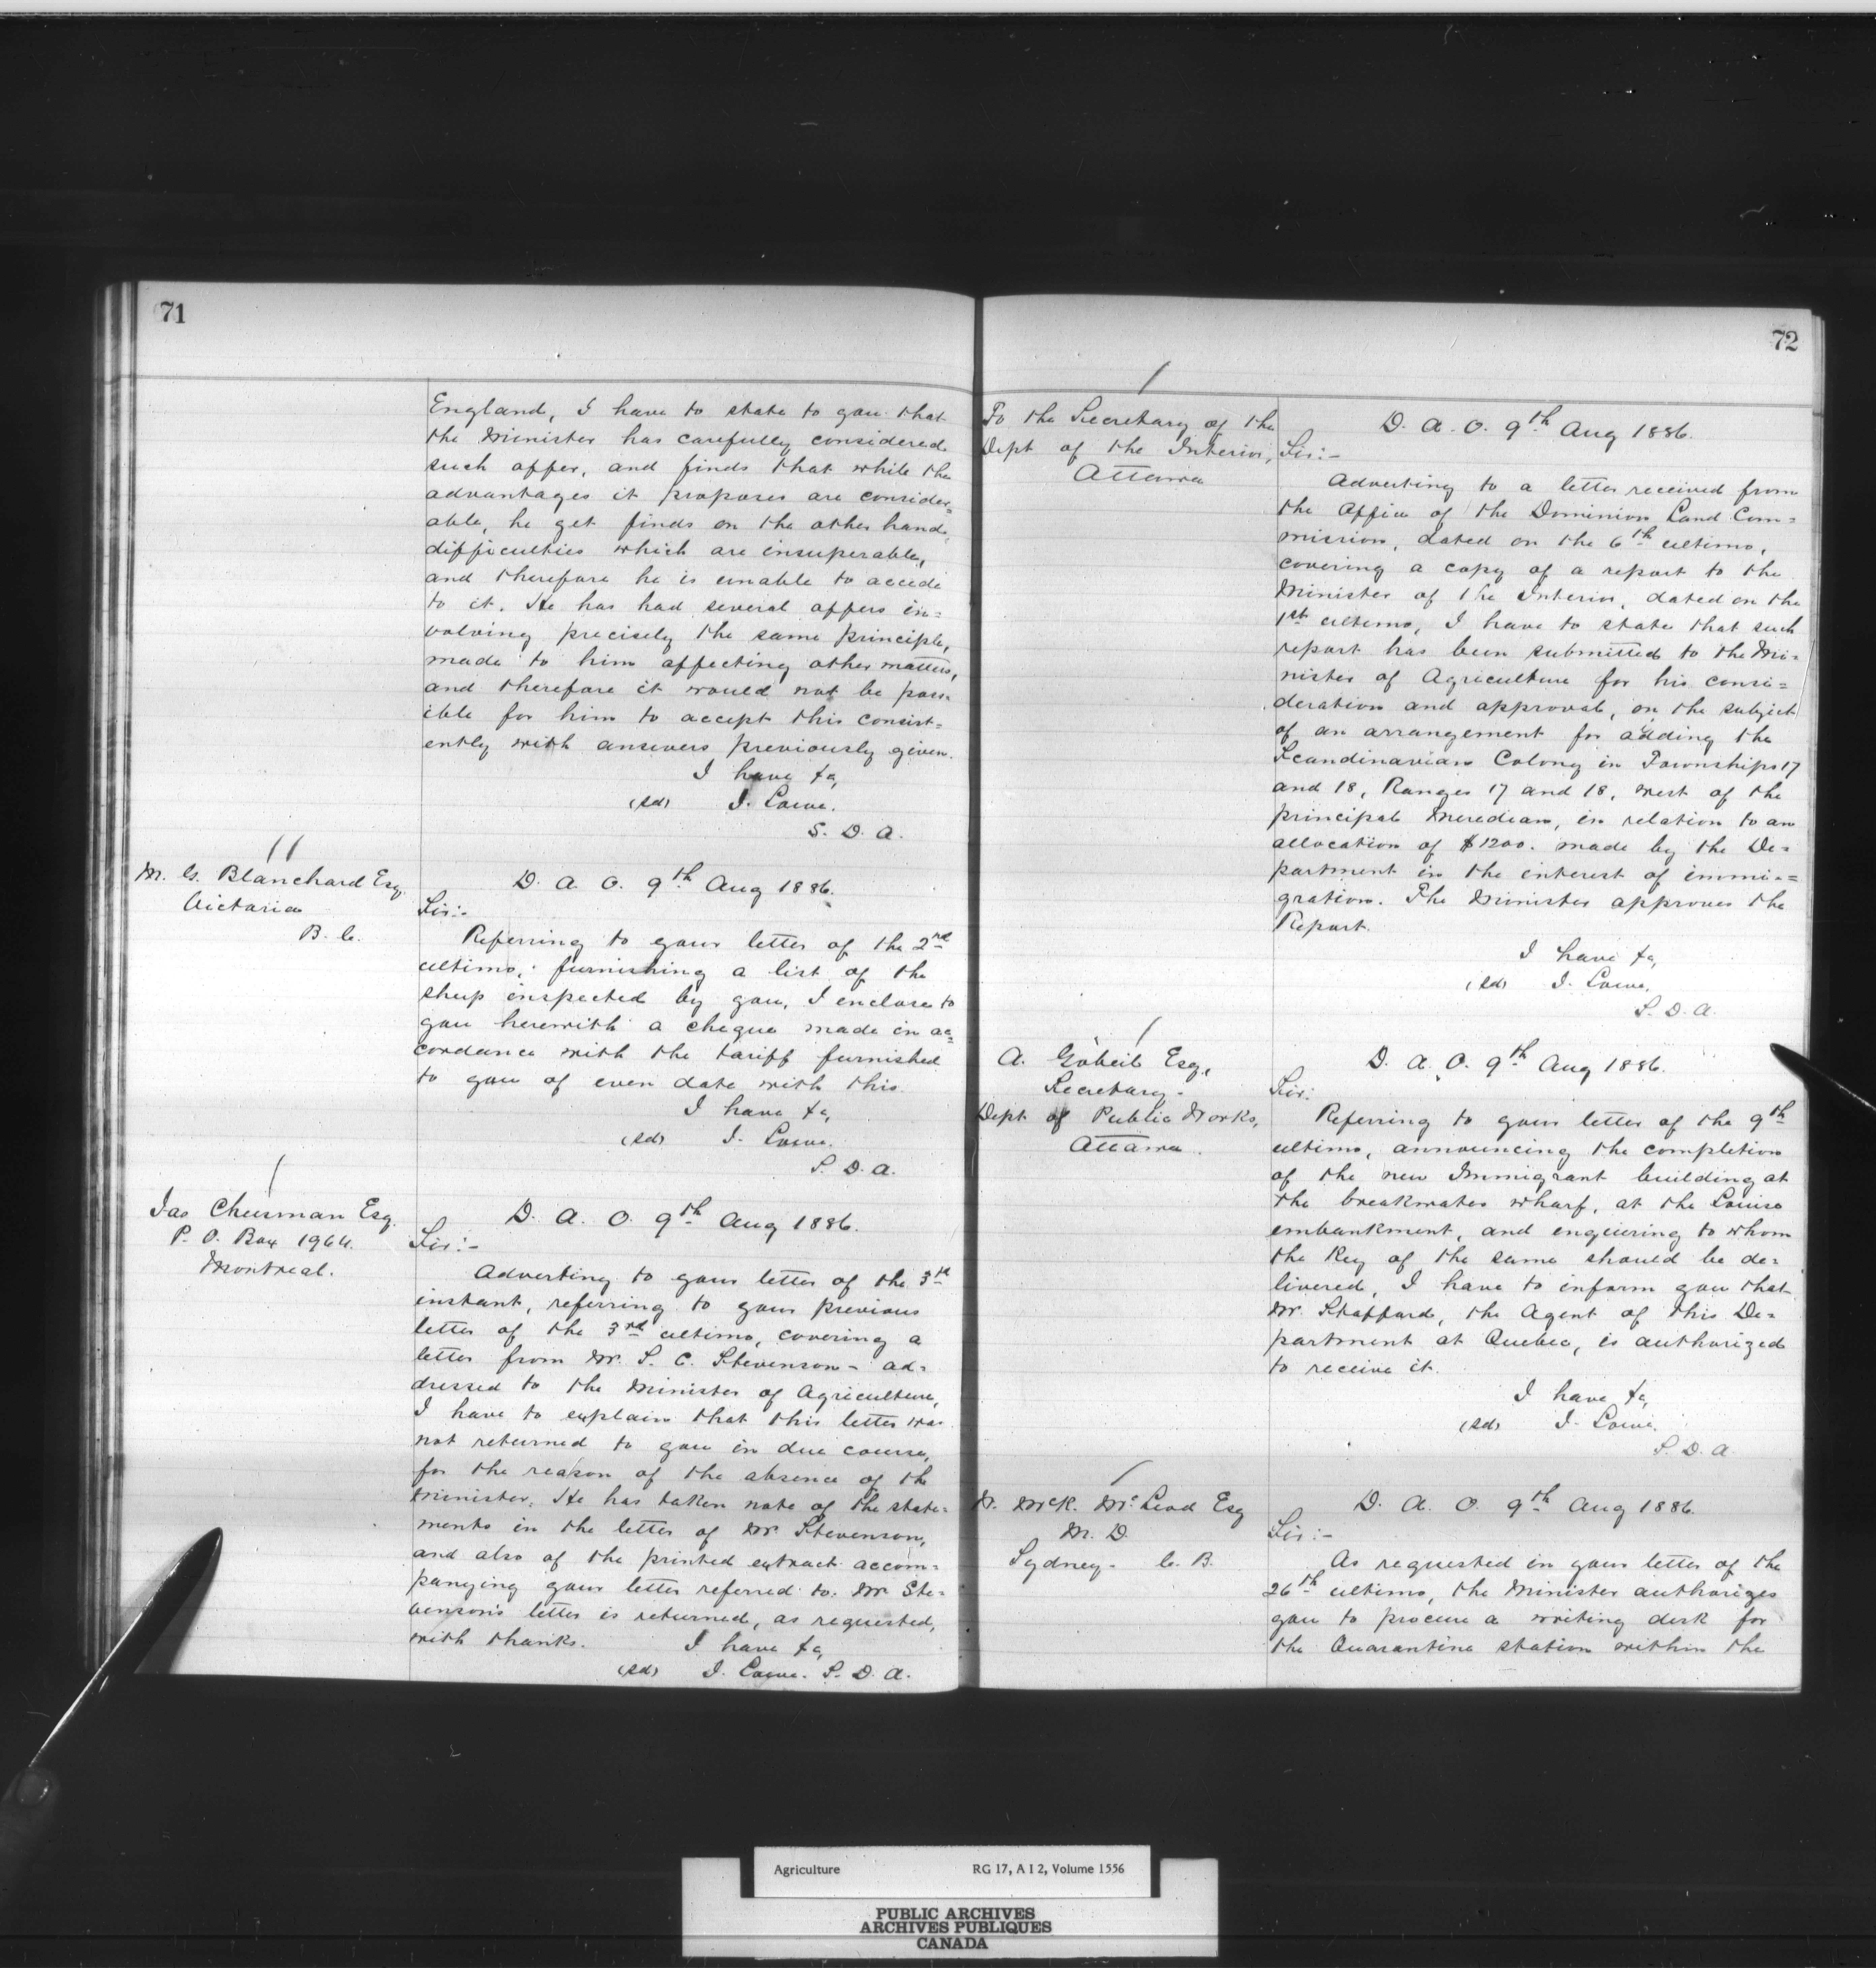 71
England, I have to state to you that
the Minister has carefully considered
such offer, and finds that while the
advantages it proposes are consider=
able, he yet finds on the other hand,
difficulties which are insuperable,
and therefore he is unable to accede
to it. He has had several offers in=
volving precisely the same principle,
made to him affecting other matters,
and therefore it would not be poss=
ible for him to accept this consist=
ently with answers previously given.
I have &c,
(sd) J. Lowe.
S. D. A.
M. G. Blanchard Esq.
Victoria
B. C.
D. A. O. 9th Aug 1886.
Sir:-
Referring to your letter of the 2nd
ultimo, furnishing a list of the
sheep inspected by you, I enclose to
you herewith a cheque made in ac=
cordance with the tariff furnished
to you of even date with this.
I have &c,
(sd) J. Lowe.
S. D. A.
Jas Cheesman Esq.
P. O. Box 1964.
Montreal.
D. A. O. 9th Aug 1886.
Sir:-
Adverting to your letter of the 3rd
instant, referring to your previous
letter of the 3rd ultimo, covering a
letter from Mr. S. C. Stevenson - ad=
dressed to the Minister of Agriculture,
I have to explain that this letter was
not returned to you in due course,
for the reason of the absence of the
Minister. He has taken note of the state=
ments in the letter of Mr. Stevenson,
and also of the printed extract accom=
panying your letter referred to. Mr. Ste=
venson's letter is returned, as requested,
with thanks.
I have &c,
(sd) J. Lowe. S. D. A.
72
To the Secretary of the
Dept of the Interior,
Ottawa
D. A. O. 9th Aug 1886.
Sir:-
Adverting to a letter received from
the Office of the Dominion Land Com=
mission, dated on the 6th ultimo,
covering a copy of a report to the
Minister of the Interior, dated on the
1st ultimo, I have to state that such
report has been submitted to the Mi=
nister of Agriculture for his consi=
deration and approval, on the subject
of an arrangement for adding the
Scandinavian Colony in Townships 17
and 18, Ranges 17 and 18, west of the
principal Meredian, in relation to an
allocation of $1200. made by the De=
partment in the interest of immi=
gration. The Minister approves the
Report.
I have &c,
(sd) J. Lowe,
S. D. A.
A. Gobeil Esq,
Secretary-
Dept of Public Works,
Ottawa.
D. A. O. 9th Aug 1886.
Sir:
Referring to your letter of the 9th
ultimo, announcing the completion
of the new Immigrant building at
the breakwater wharf, at the Louise
embankment, and enquiring to whom
the Key of the same should be de=
livered, I have to inform you that
Mr. Stafford, the Agent of this De=
partment at Quebec, is authorized
to receive it.
I have &c,
(sd) J. Lowe.
S. D. A.
McK. McLeod Esq
M. D.
Sydney- C. B.
D. A. O. 9th Aug 1886.
Sir:-
As requested in your letter of the
26th ultimo, the Minister authorizes
you to procure a writing desk for
the Quarantine station within the
Agriculture RG 17, A I 2, Volume 1556
PUBLIC ARCHIVES
ARCHIVES PUBLIQUES
CANADA